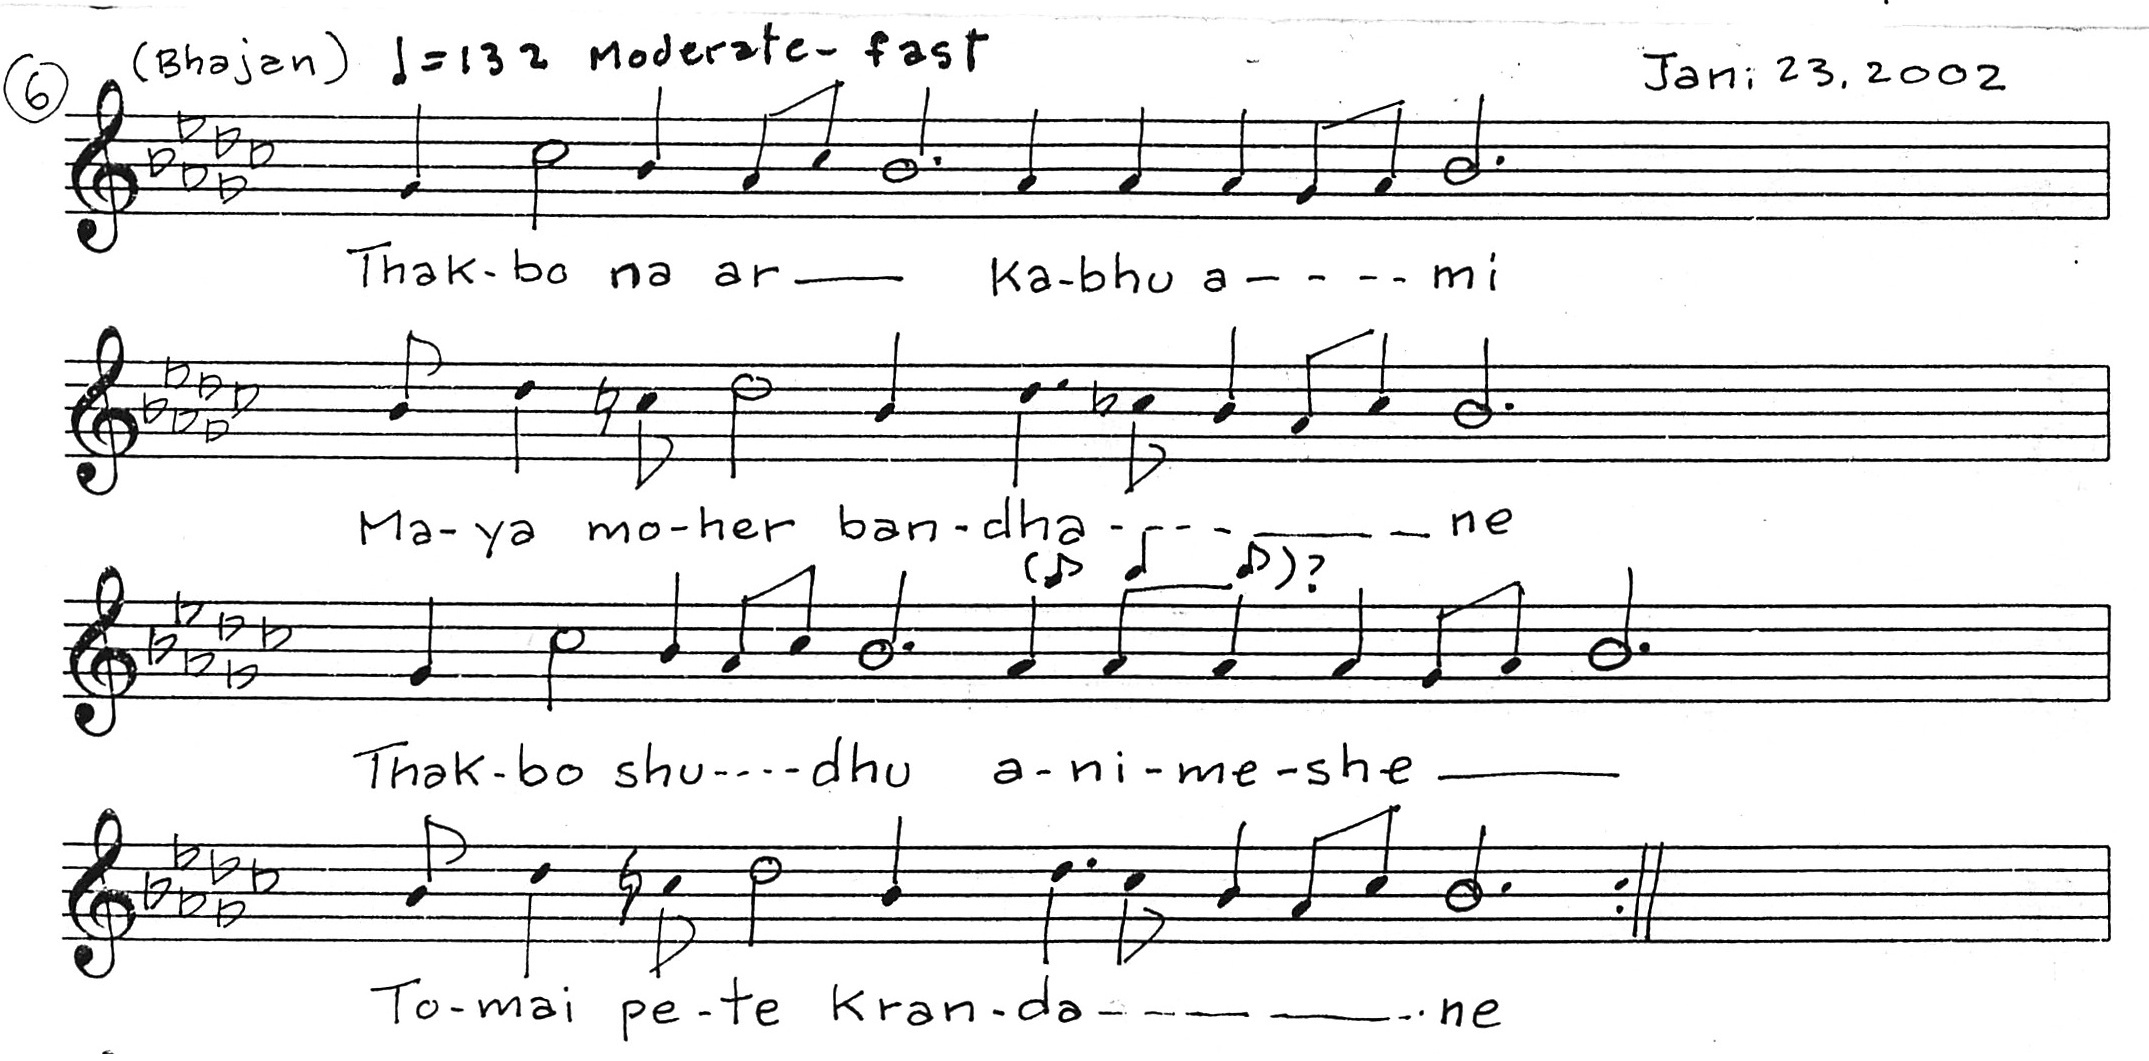 6 (Bhajan) ♩=132 Moderate-fast Jan; 23, 2002
Thak-bo na ar— Ka-bhu a----mi
Ma-ya mo-her ban-dha----——ne
(♪ ♩ ♪)?
Thak-bo shu----dhu a-ni-me-she——
To-mai pe-te Kran-da----——ne